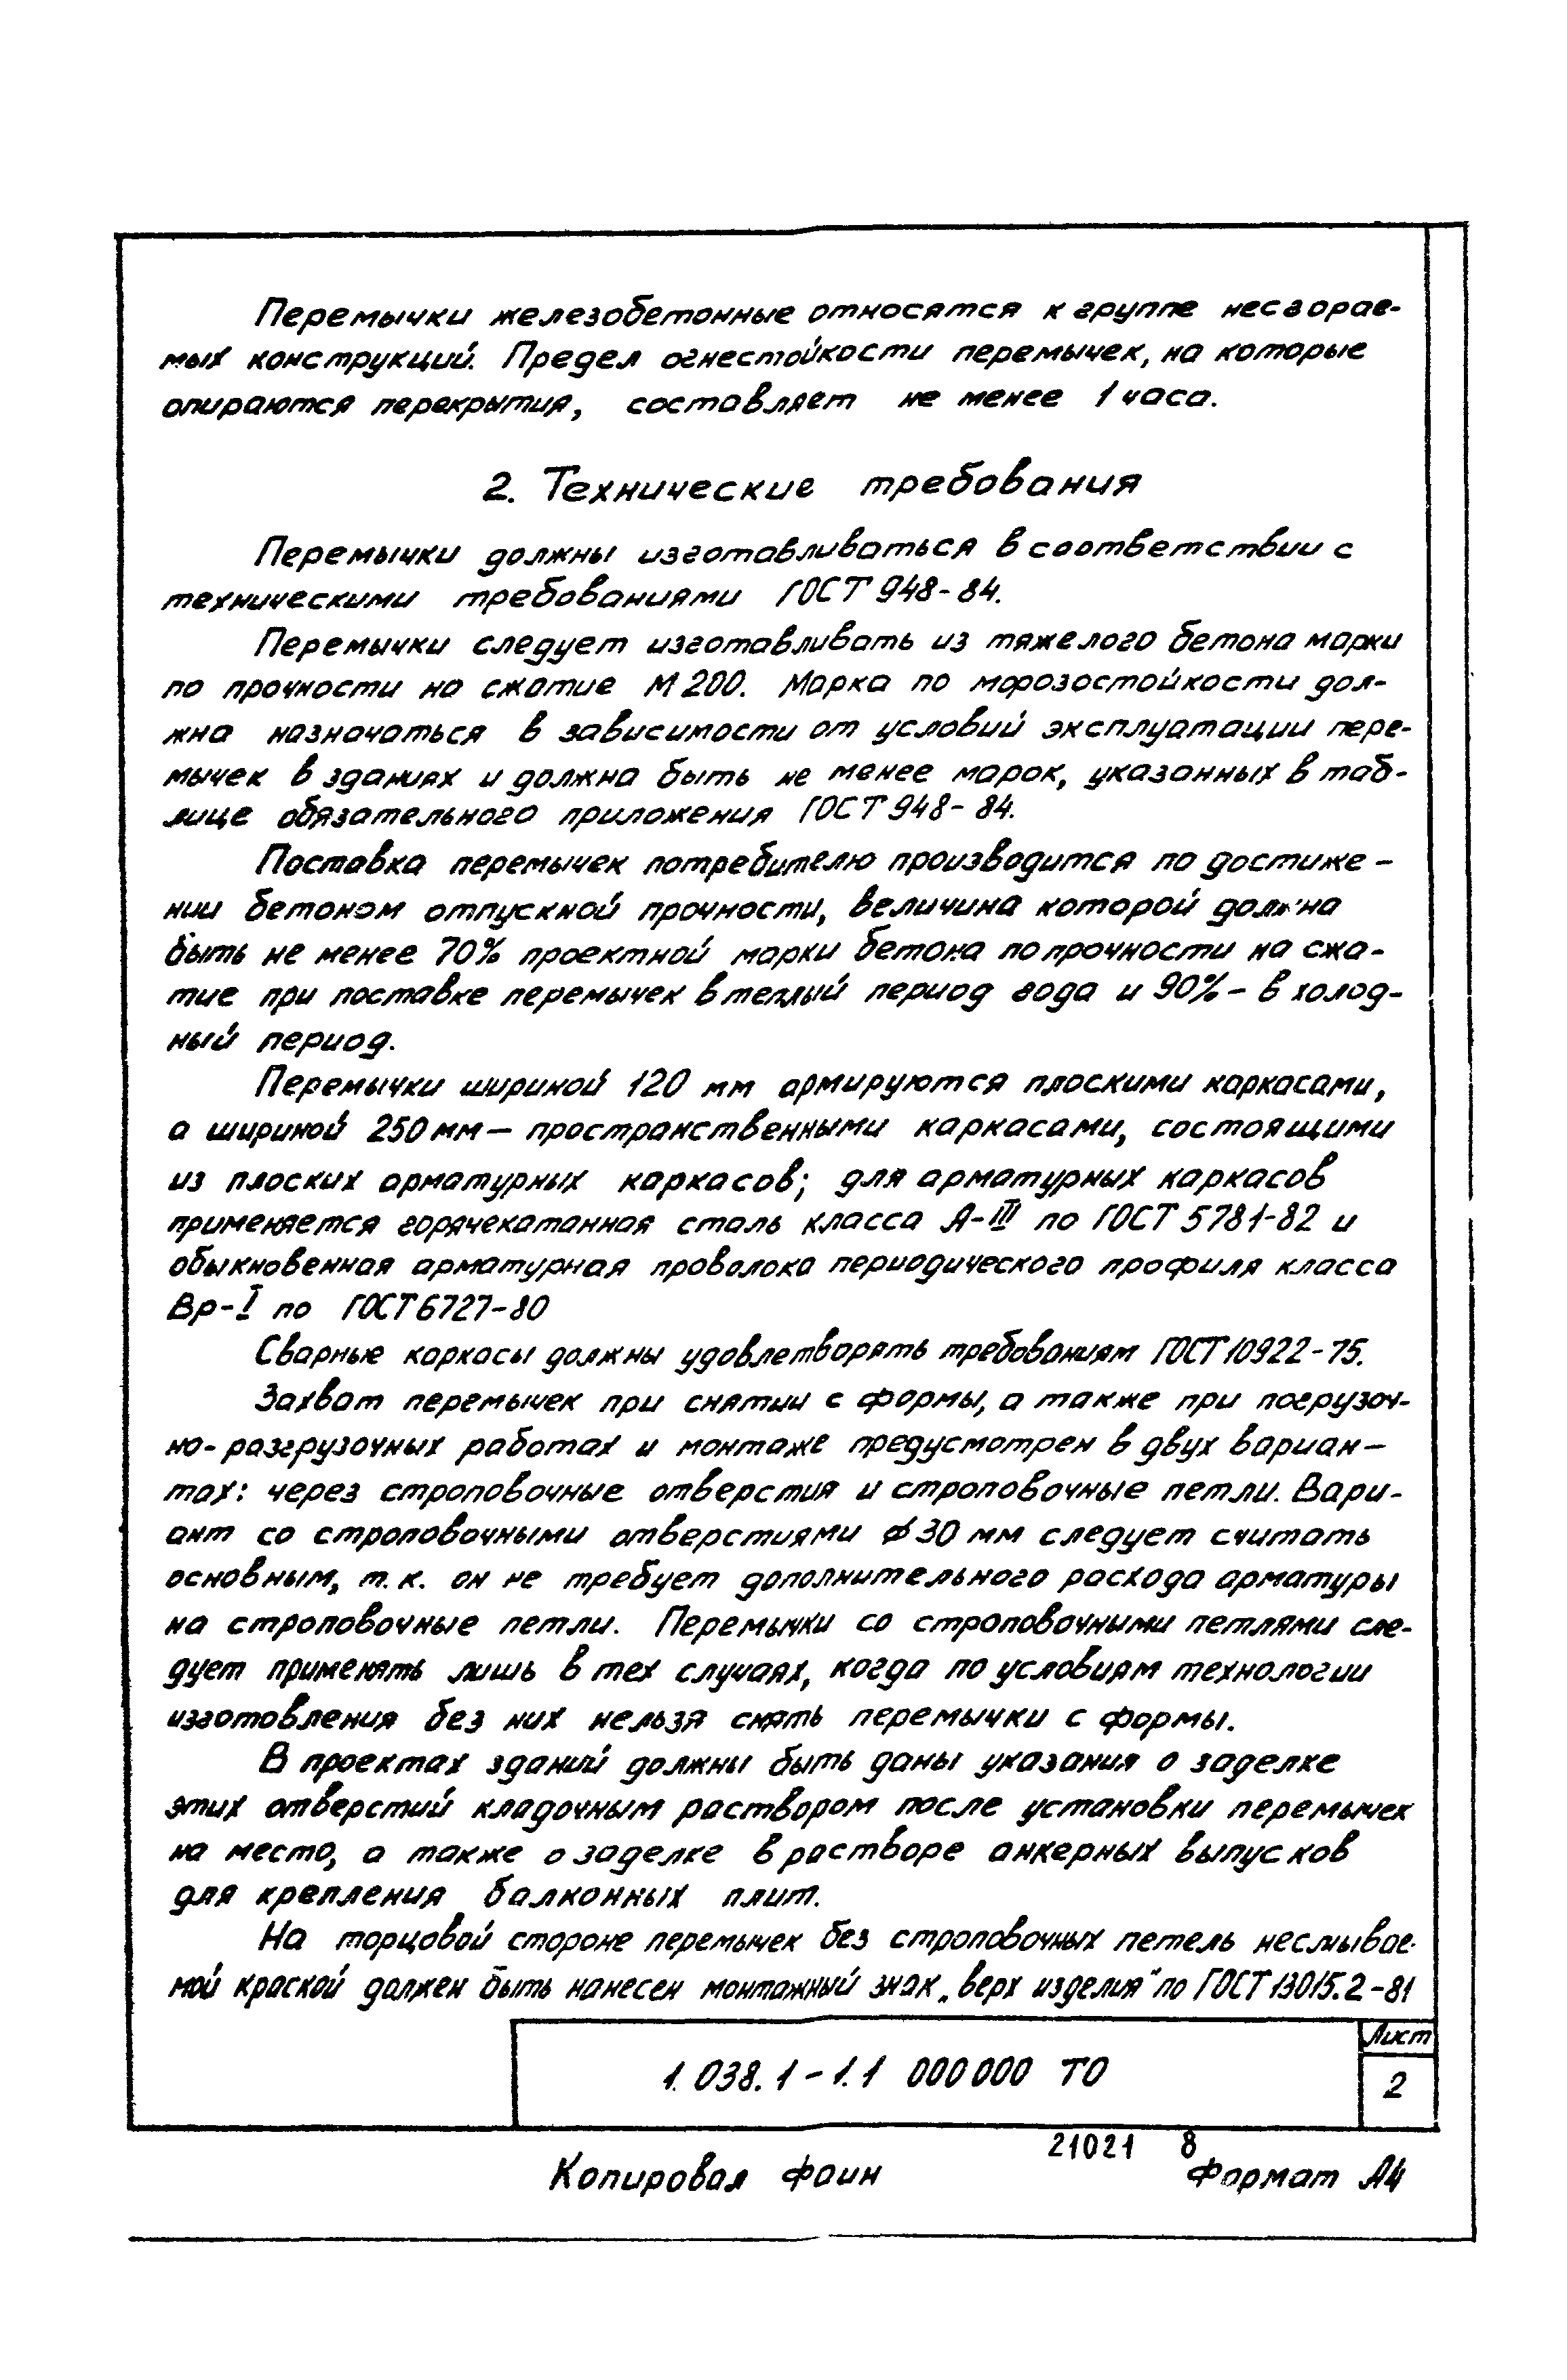 Перемычки железобетонные относятся к группе несгорае-
мых конструкций. Предел огнестойкости перемычек, на которые
опираются перекрытия, составляет не менее 1 часа.
2. Технические требования
Перемычки должны изготавливаться в соответствии с
техническими требованиями ГОСТ 948-84.
Перемычки следует изготавливать из тяжелого бетона марки
по прочности на сжатие М 200. Марка по морозостойкости дол-
жна назначаться в зависимости от условий эксплуатации пере-
мычек в зданиях и должна быть не менее марок, указанных в таб-
лице обязательного приложения ГОСТ 948-84.
Поставка перемычек потребителю производится по достиже-
нии бетоном отпускной прочности, величина которой должна
быть не менее 70% проектной марки бетона по прочности на сжа-
тие при поставке перемычек в теплый период года и 90% - в холод-
ный период.
Перемычки шириной 120 мм армируются плоскими каркасами,
а шириной 250 мм — пространственными каркасами, состоящими
из плоских арматурных каркасов; для арматурных каркасов
применяется горячекатанная сталь класса А-III по ГОСТ 5781-82 и
обыкновенная арматурная проволока периодического профиля класса
Вр-I по ГОСТ 6727-80
Сварные каркасы должны удовлетворять требованиям ГОСТ 10922-75.
Захват перемычек при снятии с формы, а также при погрузоч-
но-разгрузочных работах и монтаже предусмотрен в двух вариан-
тах: через строповочные отверстия и строповочные петли. Вари-
ант со строповочными отверстиями ∅ 30 мм следует считать
основным, т.к. он не требует дополнительного расхода арматуры
на строповочные петли. Перемычки со строповочными петлями сле-
дует применять лишь в тех случаях, когда по условиям технологии
изготовления без них нельзя снять перемычки с формы.
В проектах зданий должны быть даны указания о заделке
этих отверстий кладочным раствором после установки перемычек
на место, а также о заделке в растворе анкерных выпусков
для крепления балконных плит.
На торцовой стороне перемычек без строповочных петель несмывае-
мой краской должен быть нанесен монтажный знак „верх изделия" по ГОСТ 13015.2-81
1.038.1-1.1 000000 ТО
Лист
2
21021 8
Копировал Фаин Формат А4